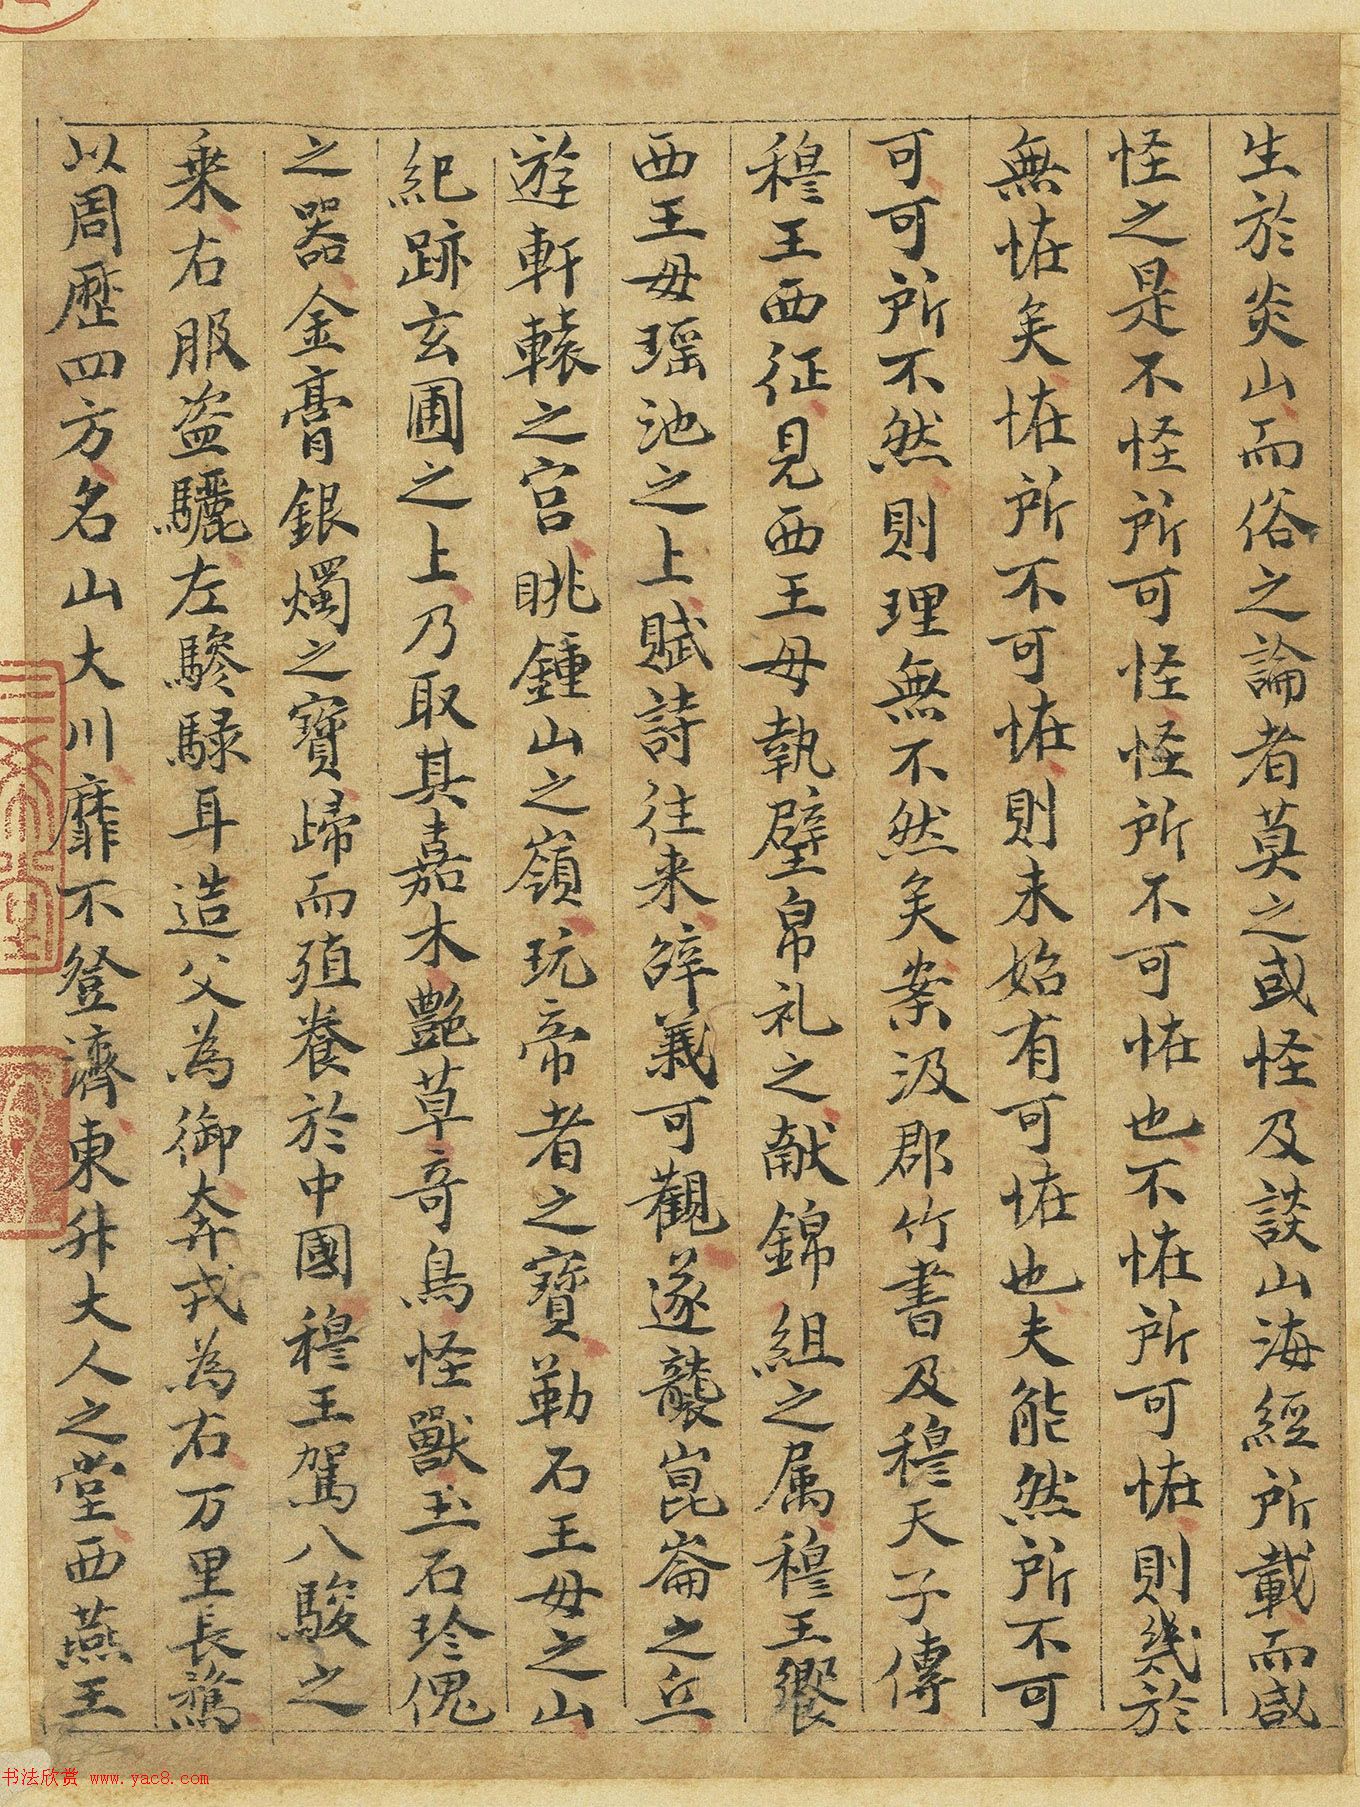 生於炎山而俗之論者莫之或怪及談山海經所載而咸
怪之是不怪所可怪怪所不可恠也不恠所可恠則幾於
無恠矣恠所不可恠則未始有可恠也夫能然所不可
可可所不然則理無不然矣案汲郡竹書及穆天子傳
穆王西征見西王母執璧帛礼之献錦組之属穆王饗
西王母瑶池之上賦詩往来辝義可觀遂襲崑崙之丘
遊軒轅之宮眺鍾山之嶺玩帝者之寶勒石王母之山
紀跡玄圃之上乃取其嘉木艶草奇鳥怪獸玉石珍傀
之器金膏銀燭之寶歸而殖養於中國穆王駕八駿之
乗右服盗驪左驂騄耳造父為御奔戎為右万里長鶩
以周歷四方名山大川靡不登濟東升大人之堂西燕王
书法欣赏 www.yac8.com